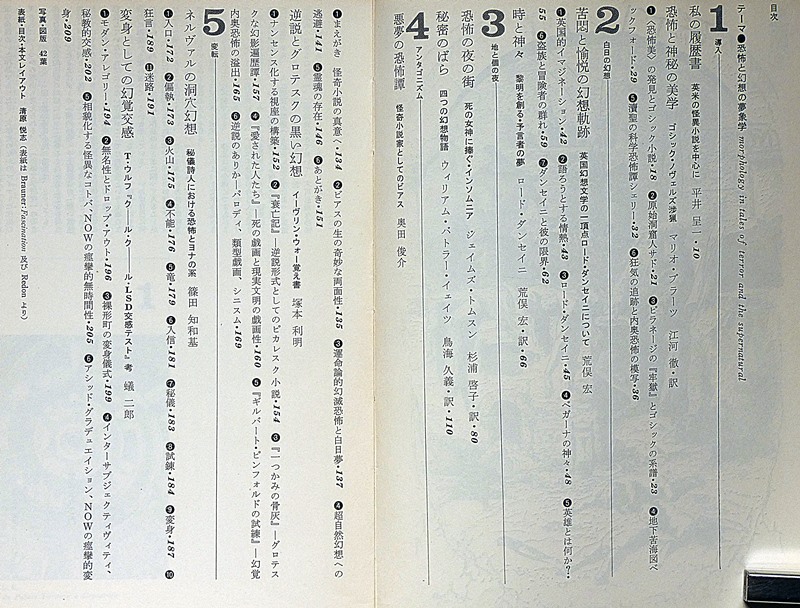 目次
テーマ●恐怖と幻想の夢象学 morphology in tales of terror and the supernatural
1 導入
私の履歴書 英米の怪異小説を中心に 平井 呈一・10
恐怖と神秘の美学 ゴシック・ノヴェルズ渉猟 マリオ・プラーツ 江河 徹・訳
❶〈恐怖美〉の発見とゴシック小説・18 ❷原始洞窟人サド・21 ❸ピラネージの『牢獄』とゴシックの系譜・23 ❹地下苦海図ベ
ックフォード・29 ❺瀆聖の科学恐怖譚シェリー・32 ❻狂気の追跡と内奥恐怖の模写・36
2 白日の幻想
苦悶と愉悦の幻想軌跡 英国幻想文学の一頂点ロード・ダンセイニについて 荒俣 宏
❶英国的イマジネーション・42 ❷語ろうとする情熱・43 ❸ロード・ダンセイニ・45 ❹ペガーナの神々・48 ❺英雄とは何か?・
55 ❻盗族と冒険者の群れ・59 ❼ダンセイニと彼の限界・62
時と神々 黎明を創る・予言者の夢 ロード・ダンセイニ 荒俣 宏・訳・66
3 地と個の夜
恐怖の夜の街 死の女神に捧ぐ・インソムニア ジェイムズ・トムスン 杉浦 啓子・訳・80
秘密のばら 四つの幻想物語 ウィリアム・バトラー・イェイツ 鳥海 久義・訳・110
4 アンタゴニズム
悪夢の恐怖譚 怪奇小説家としてのビアス 奥田 俊介
❶まえがき 怪奇小説の真意〈・134 ❷ビアスの生の奇妙な両面性・135 ❸運命論的幻滅恐怖と白日夢・137 ❹超自然幻想への
逃避・141 ❺霊魂の存在・146 ❻あとがき・151
逆説とグロテスクの黒い幻想 イーヴリン・ウォー覚え書 塚本 利明
❶ナンセンス化する視座の構築・152 ❷『衰亡記』—逆説形式としてのピカレスク小説・154 ❸『一つかみの骨灰』—グロテス
クな幻影遍歴譚・157 ❹『愛された人たち』—死の戯画と現実文明の戯画性・160 ❺『ギルバート・ピンフォルドの試練』—幻覚
内奥恐怖の溢出・165 ❻逆説のありか—パロディ、類型戯画、シニスム・169
5 変転
ネルヴァルの洞穴幻想 秘儀詩人における恐怖とヨナの案 篠田 知和基
❶入口・172 ❷偏執・173 ❸火山・175 ❹不能・176 ❺竜・179 ❻入信・181 ❼秘儀・183 ❽試練・184 ❾変身・187 ❿
狂言・189 ⓫迷路・191
変身としての幻覚交感 T・ウルフ『クール・クール・LSD交感テスト』考 蟻 二郎
❶モダン・アレゴリー・194 ❷無名性とドロップ・アウト・196 ❸裸形町の変身儀式・199 ❹インターサブジェクティヴィティ、
秘教的交感・202 ❺相貌化する怪異なコトバ、NOWの痙攣的無時間性・205 ❻アシッド・グラデュエイション、NOWの痙攣的変
身・209
写真・図版 42葉
表紙・目次・本文レイアウト 清原 悦志(表紙は Brauner: Fascination 及び Redon より)